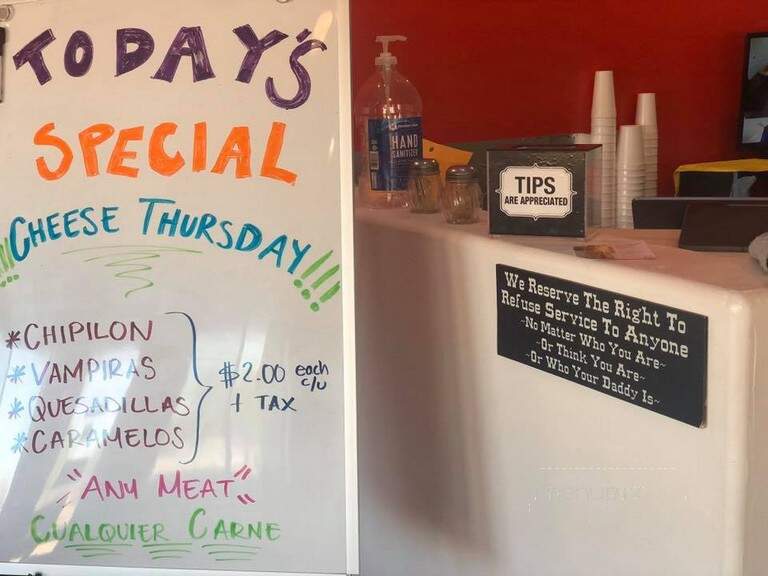 TODAY'S
SPECIAL
!!! CHEESE THURSDAY !!!
*CHIPILON
*VAMPIRAS
*QUESADILLAS
*CARAMELOS
$2.00 each c/u
+ TAX
"ANY MEAT"
CUALQUIER CARNE
HAND
SANITIZER
TIPS
ARE APPRECIATED
We Reserve The Right To
Refuse Service To Anyone
~No Matter Who You Are~
~Or Think You Are~
~Or Who Your Daddy Is~